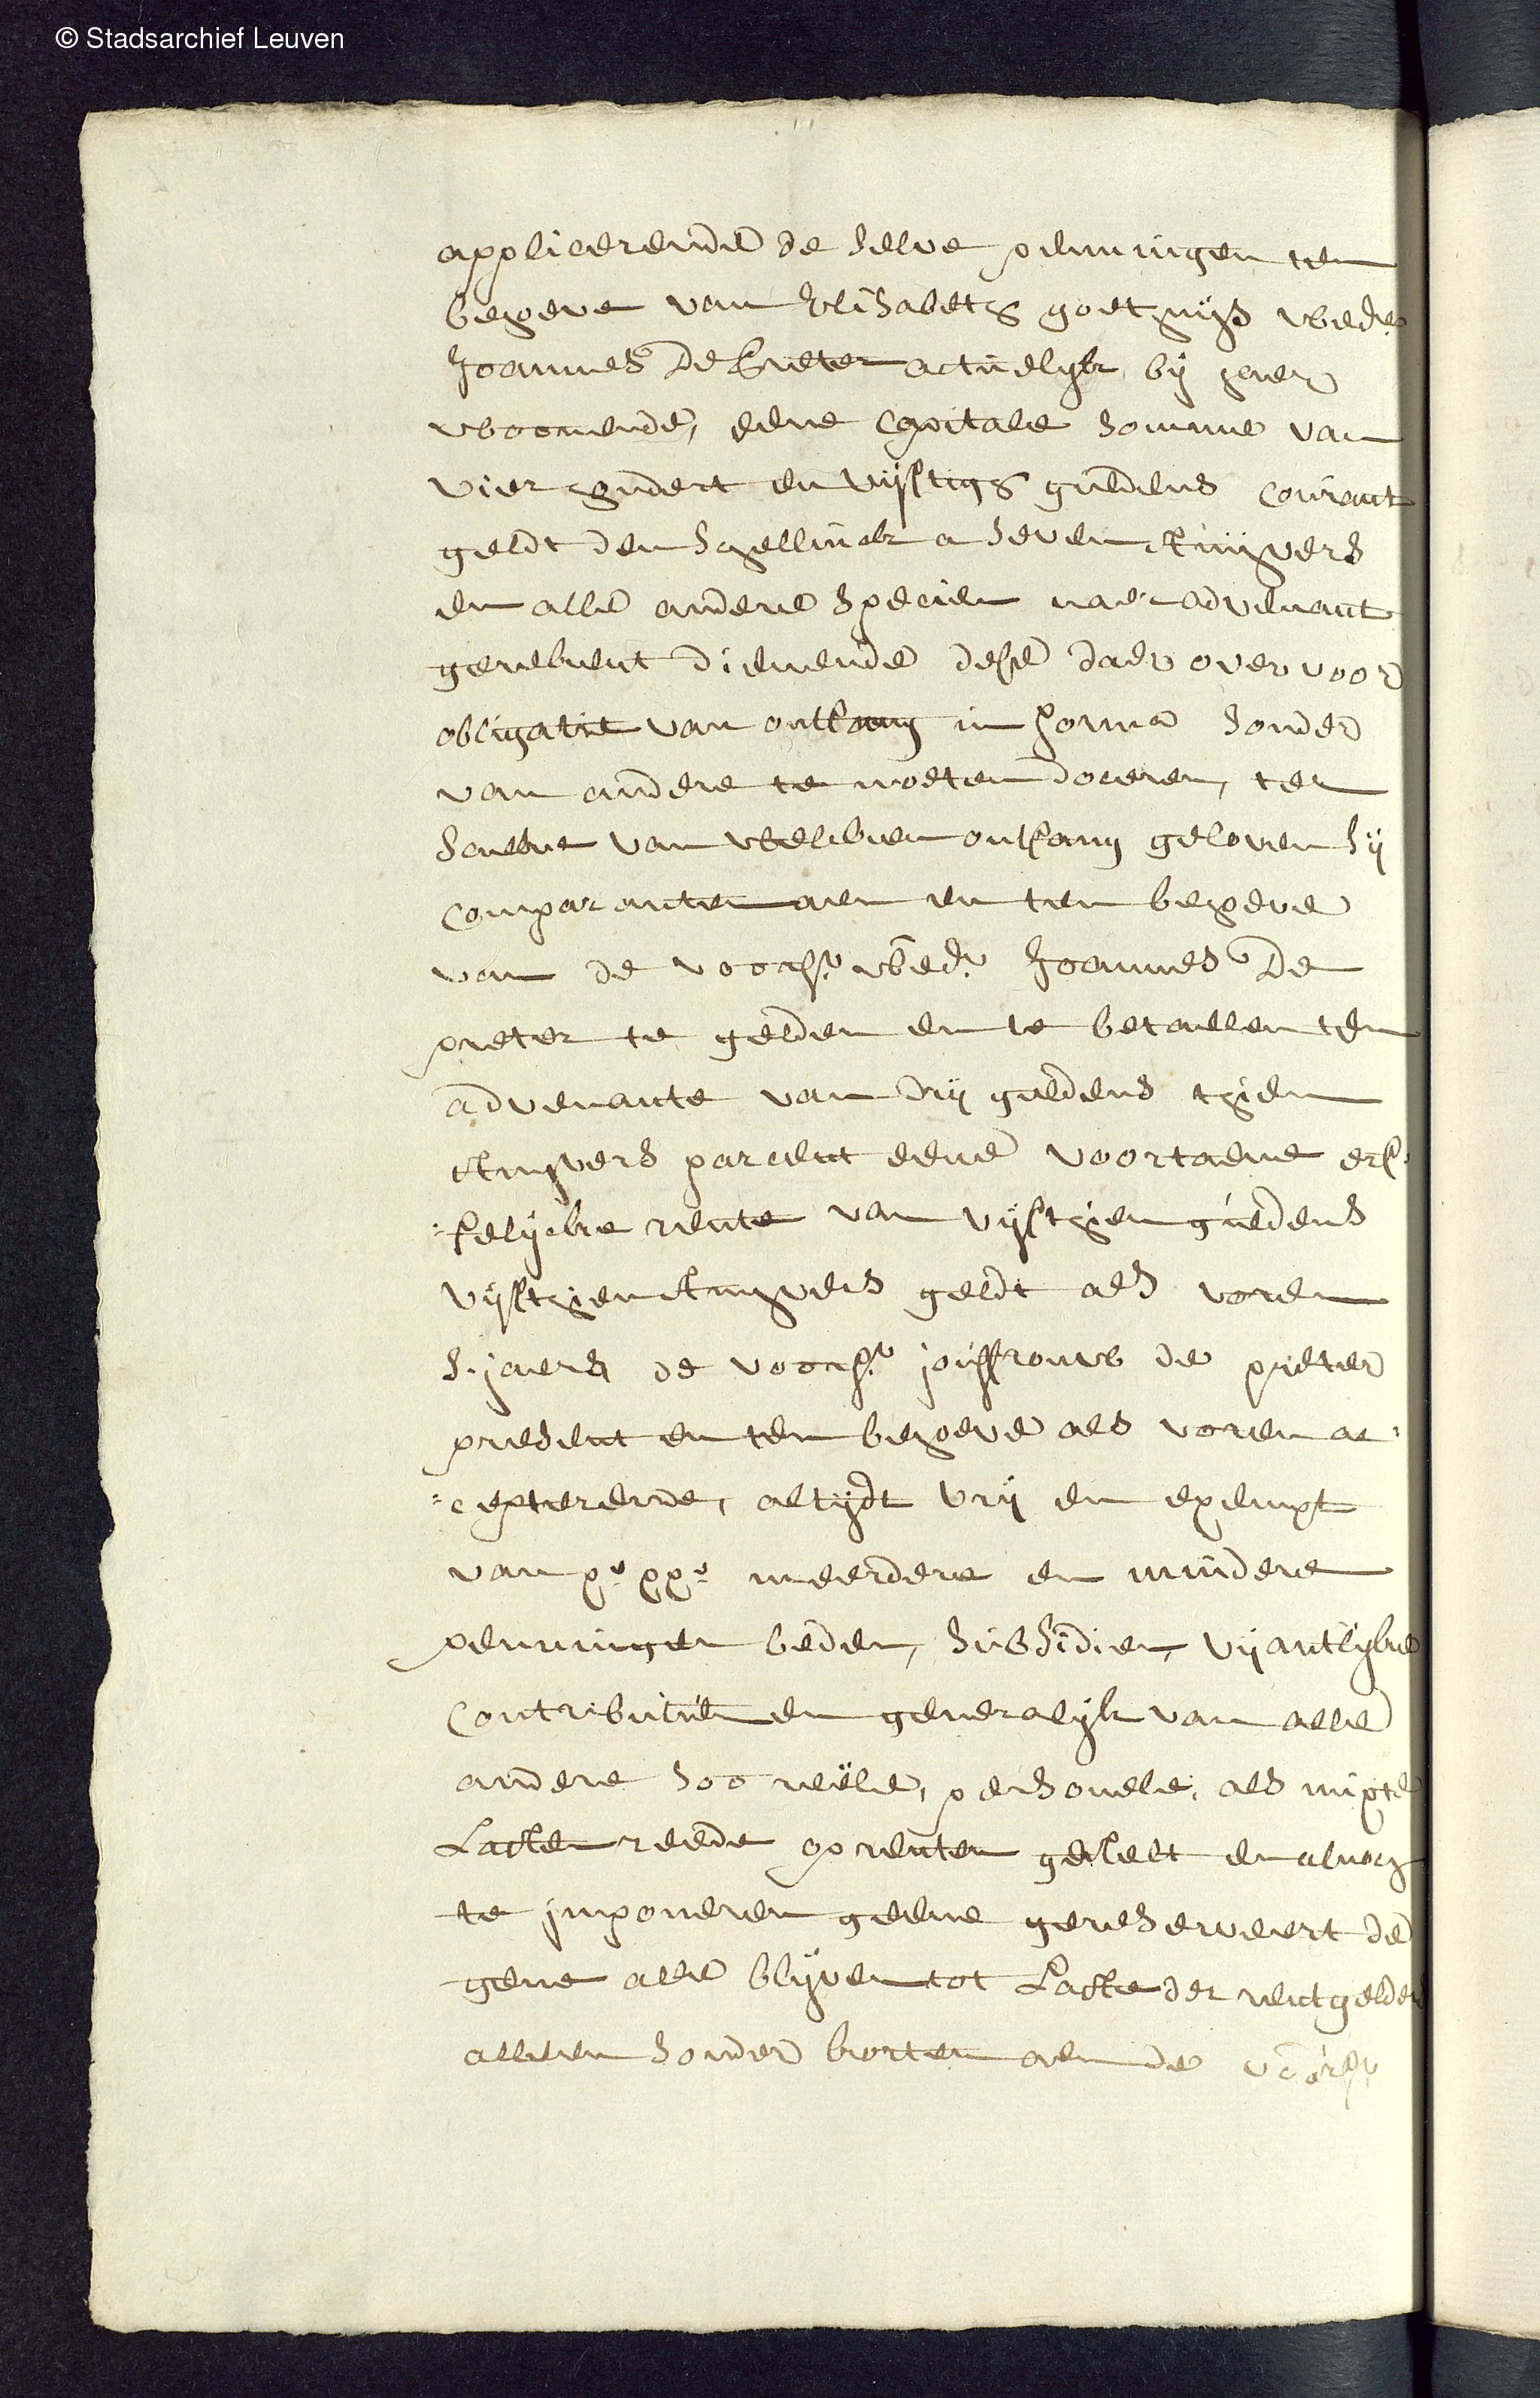 © Stadsarchief Leuven
applicerende de selve penningen ten
behoeve van Elisabeth goethuijs wed.e
Joannes De Preter actuelijk bij haer
woonende, eene capitale somme van
vier hondert en vijftigh guldens courant
geldt den schellinck a seven stuijvers
en alle andere specien naer advenant
gerekent dienende dese daer over voor
obligatie van ontfang in forma sonder
van andere te moeten doceren, ter
saecke van welcken ontfang geloven sij
comparanten aen en ten behoeve
van de voors.e wed.e Joannes De
preter te gelden en te betaelen ten
advenante van drij guldens thien
stuijvers par cent eene voortaene erf¬
=felijcke rente van vijfthien guldens
vijfthien stuijvers geldt als voren
s'jaers de voors.e jouffrouw de preter
present en ten behoeve als voren ac¬
=cepterende, altijdt vrij en exempt
van x.e xx.e meerdere en mindere
penningen beden, subsidien, vijantlijke
contributien en generalijk van alle
andere soo reële, personele, als mixte
Lasten reede op renten gestelt en alnoch
te imponeren geene gereserveert de
gene alle blijven tot Laste der rentgelders
alleen sonder korten aen de voors.e